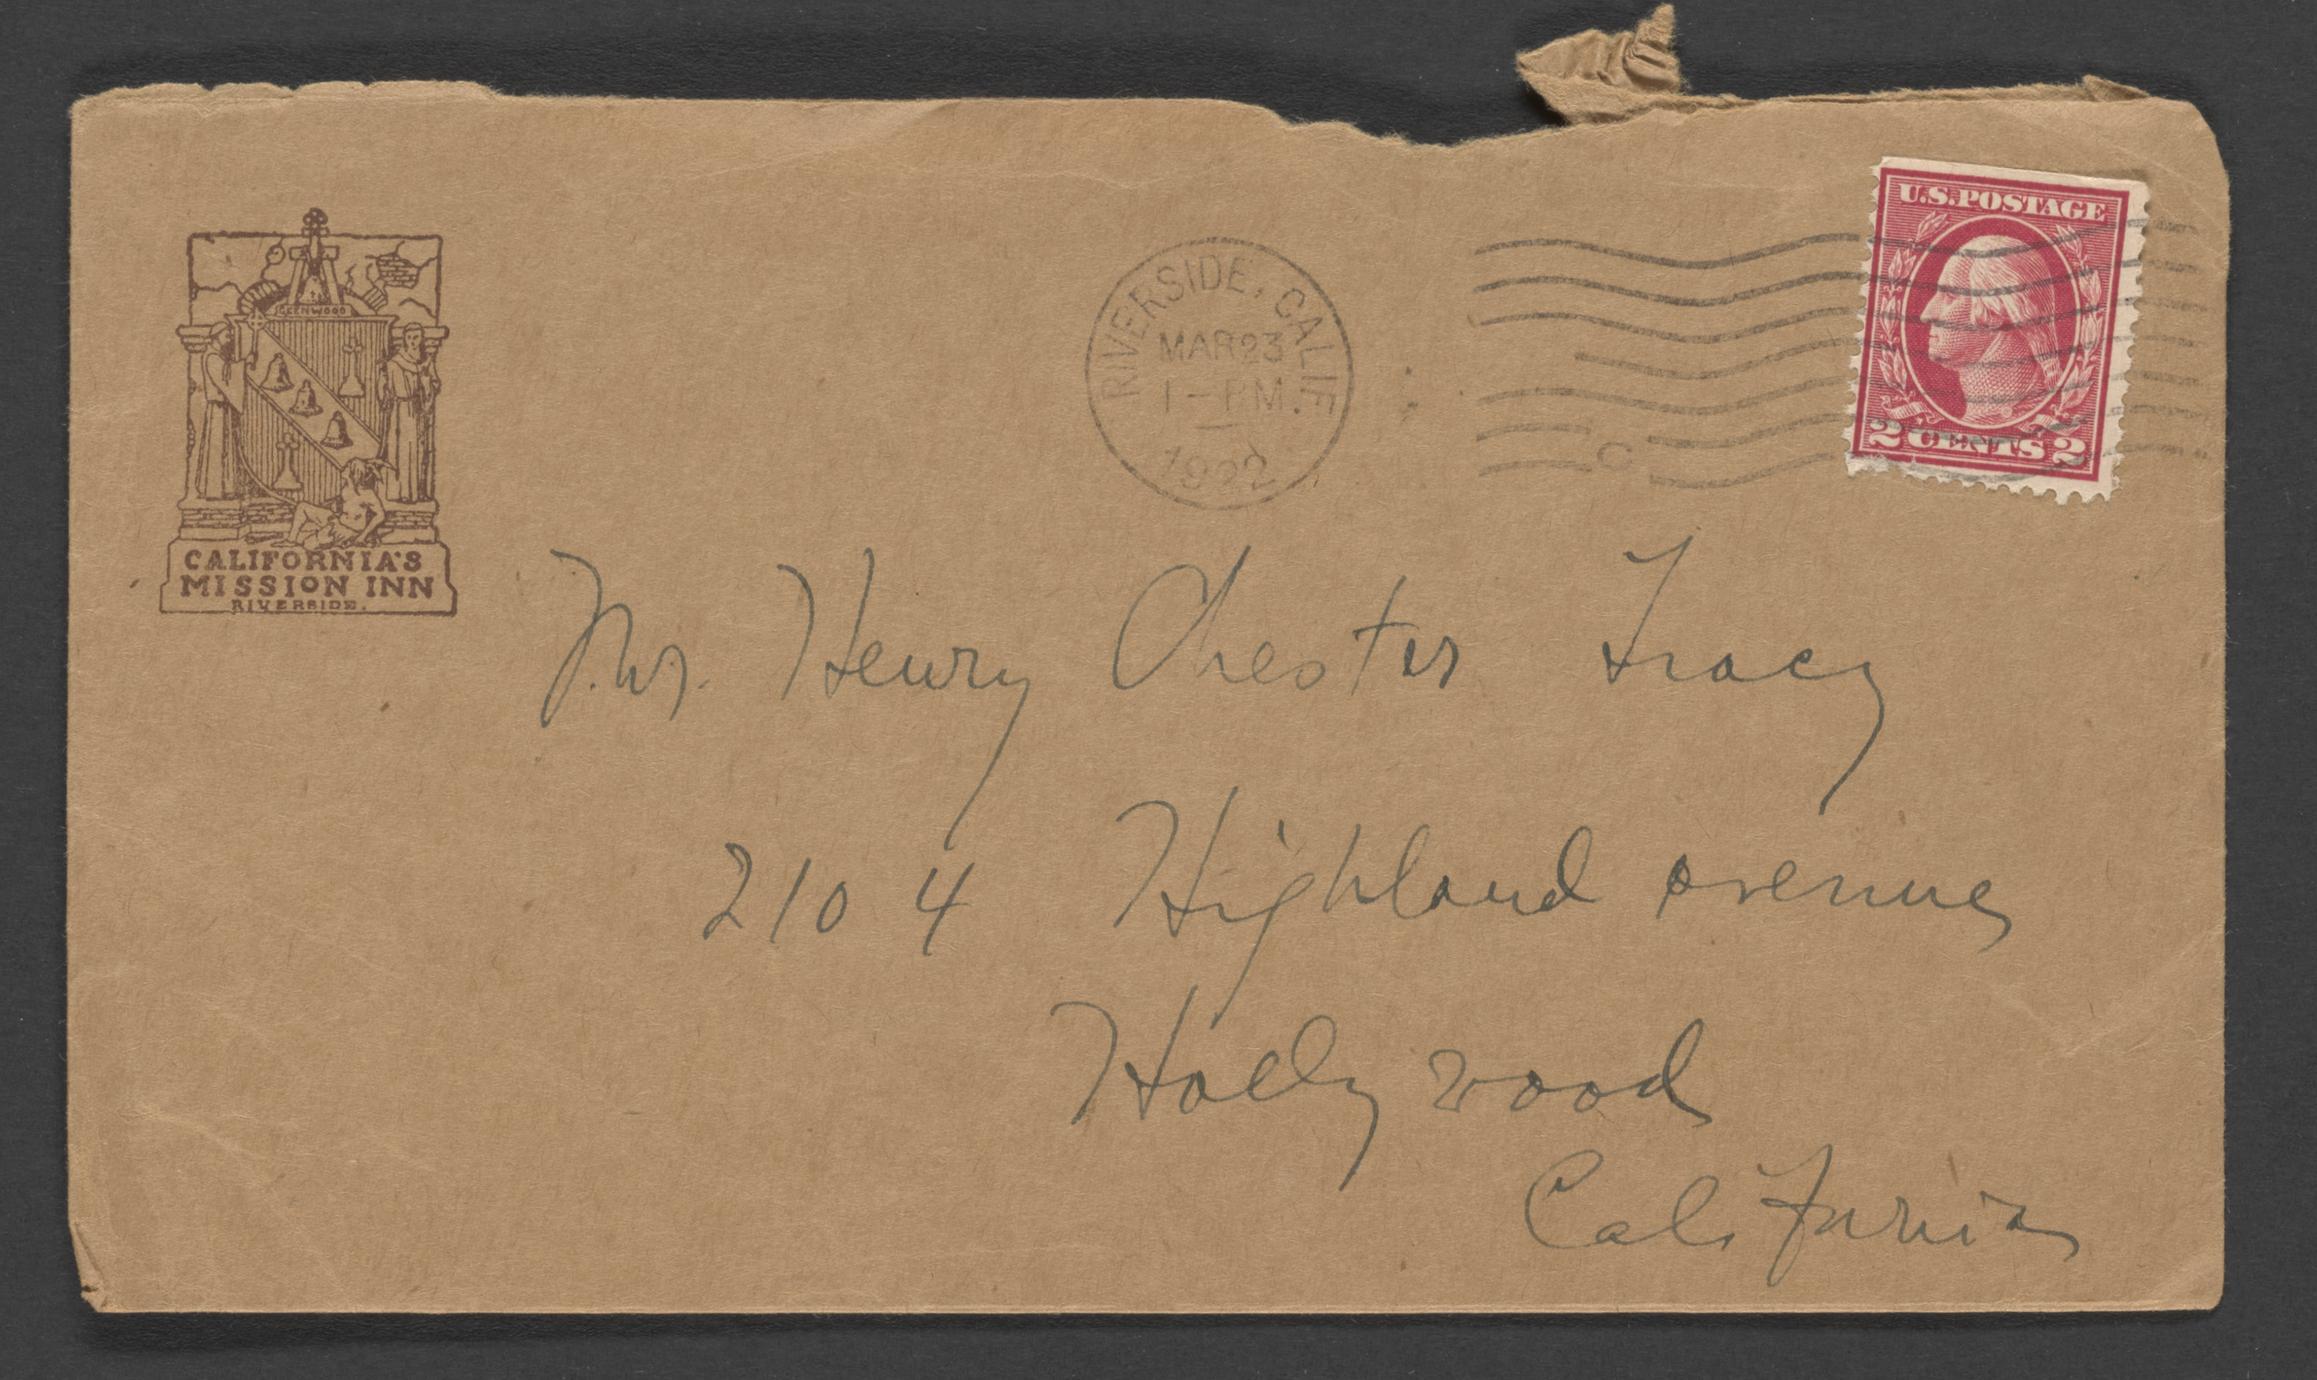 GLENWOOD
CALIFORNIA'S
MISSION INN
RIVERSIDE.
RIVERSIDE, CALIF.
MAR 23
1 - PM.
1922
U.S. POSTAGE
2 CENTS 2
Mr. Henry Chester Tracy
2104 Highland Avenue
Hollywood
California